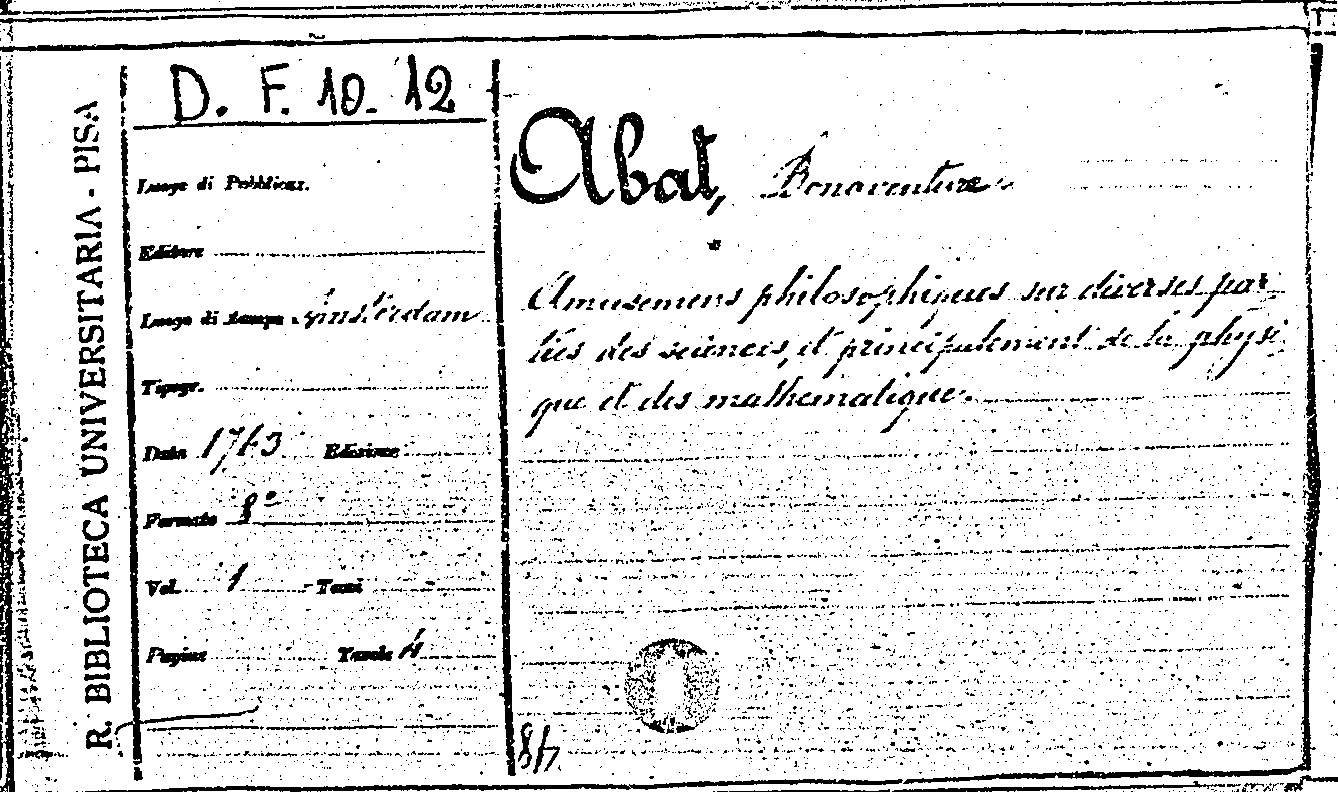 R. BIBLIOTECA UNIVERSITARIA - PISA
D. F. 10. 12
Luogo di Pubblicaz.
Editore
Luogo di stampa Amsterdam
Tipogr.
Data 1763 Edizione
Formato 8º
Vol. 1 Tomi
Pagine Tavole 4
Abat, Bonaventure
Amusemens philosophiques sur diverses par-
ties des sciences, et principalement de la physi-
que et des mathematique.